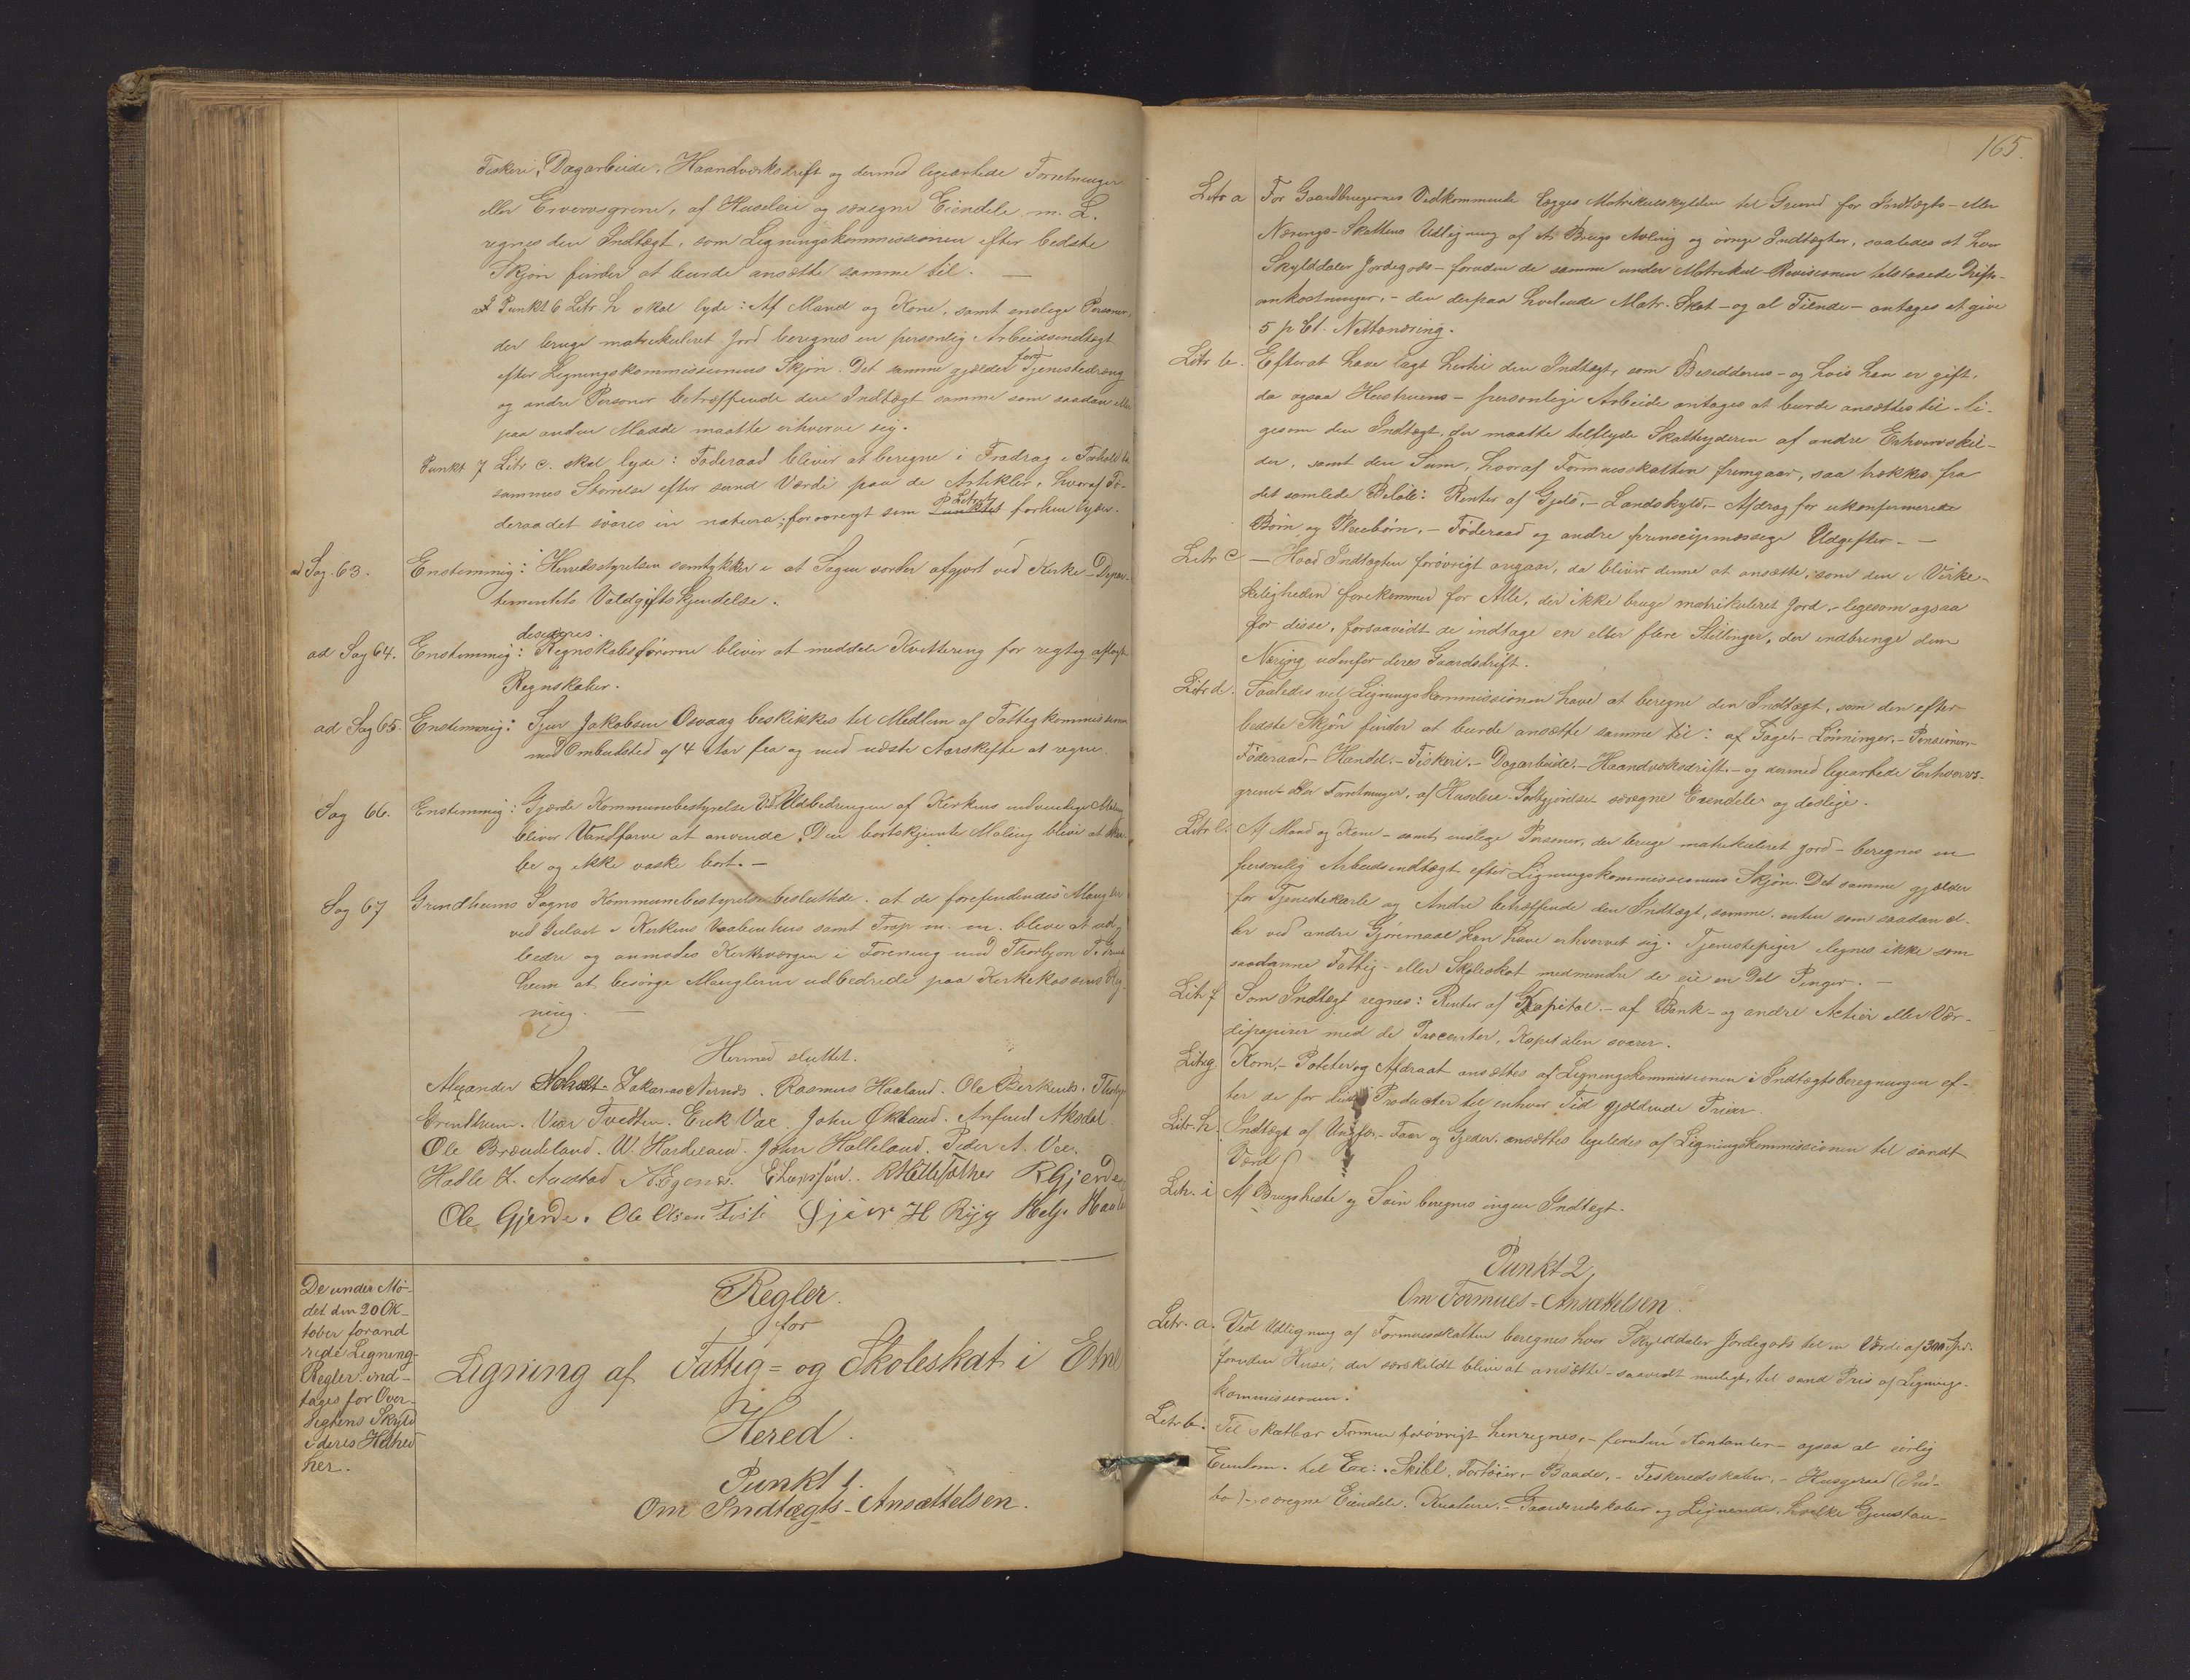 Fiskeri, Dagarbeide, Haandværksdrift og dermed ligeartede Forretninger
eller Erværvsgrene, af Husleie og særegne Eiendele m. L.
regnes den Indtægt, som Ligningskommissionen efter bedste
Skjøn finder at burde ansætte samme til. —
I Punkt 6 Litr h skal lyde: Af Mand og Kone, samt enslige Personer,
der bruge matrikuleret Jord beregnes en personlig Arbeidsindtægt
efter Ligningskommissionens Skjøn. Det samme gjælder for Tjenestedreng
og andre Personer betræffende den Indtægt samme som saadan eller
paa anden Maade maatte erhverve sig.
Punkt 7 Litr c. skal lyde: Føderaad bliver at beregne i Fradrag i Forhold til
sammes Størrelse efter sand Værdi paa de Artikler, hvoraf Fø-
deraadet svares in natura; forøvrigt som Punktet forhen lyder.
ad Sag. 63. Enstemmig: Herredsstyrelsen samtykker i at Sagen vorder afgjort ved Kirke-Depar-
tementets Voldgiftskjendelse.
ad Sag 64. Enstemmig: Regnskabsførerne bliver at meddele Kvittering for rigtig aflagt
Regnskaber.
ad Sag 65. Enstemmig: Sjur Jakobsen Osvaag beskikkes til Medlem af Fattigkommissionen
med Ombudstid af 4 Aar fra og med næste Aarskifte at regne.
Sag 66. Enstemmig: Gjærde Kommunebestyrelse Ved Udbedringen af Kirkens indvendige Maling
bliver Vandfarve at anvende. Den bortskjæmte Maling blive at skra-
be og ikke vaske bort. —
Sag 67 Grindheims Sogns Kommunebestyrelse besluttede: at de forefindendes Mangler
ved Gulvet i Kirkens Vaabenhus samt Trap m. m. blive at ud-
bedre og anmodes Kirkeværgen i Forening med Thorbjørn T. Grind-
heim at besørge Manglerne udbedrede paa Kirkekassens Reg-
ning. —
Hermed sluttet.
Alexander Zakarias Nernes. Rasmus Haaland. Ole Birkenes. Thorbjørn
Grindheim. Vier Tvedten. Erik Vae. John Økland. Arfind Aksdal.
Ole Brændeland. W. Hardeland. John Halleland. Peder A. Vee.
Halle Z. Austad
Ole Gjerde. Ole Olsen Fiste Sjur H Ryg Helje Haaland
De under Mø-
det den 20 Ok-
tober forand
rede Ligning-
Regler ind-
tages for Over-
sigtens Skyld
i deres Helhed
her.
Regler
for
Ligning af Fattig= og Skoleskat i Etne
Hered.
Punkt 1.
Om Indtægts-Ansættelsen.
165.
Litr a For Gaardbrugernes Vedkommende lægges Matrikulskylden til Grund for Indtægts- eller
Nærings-Skattens Udligning af At Brugs Avling og øvrige Indtægter, saaledes at hver
Skylddaler Jordegods - foruden de samme under Matrikul-Revisionen tilstaaede Drifts-
omkostninger, - den derpaa hvilende Matr. Skat - og al Tiende - antages at give
5 p Ct. Nettonæring.
Litr b. Efterat have lagt hertil den Indtægt, som Besidderens - og hvis han er gift,
da ogsaa Hustruens - personlige Arbeide antages at burde ansættes til - li-
gesom den Indtægt, der maatte tilflyde Skatteyderen af andre Erhvervskil-
der, samt den Sum, hvoraf Formuesskatten fremgaar, saa trækkes fra
det samlede Beløb: Renter af Gjeld, - Landskyld, - Afdrag for ukonfirmerede
Børn og Pleiebørn, - Føderaad og andre prinsipmæssige Udgifter. —
Litr c — Hvad Indtægten forøvrigt angaar, da bliver denne at ansætte, som den i Virke-
keligheden forekommer for Alle, der ikke bruge matrikuleret Jord, - ligesom ogsaa
for disse, forsaavidt de indtage en eller flere Stillinger, der indbringe dem
Næring udenfor deres Gaardsdrift.
Litr d. Saaledes vil Ligningskommissionen have at beregne den Indtægt, som den efter
bedste Skjøn finder at burde ansætte samme til: af Gage, - Lønninger, - Pensioner, -
Føderaad, - Handel, - Fiskeri, - Dagarbeide, - Haandværksdrift, - og dermed ligeartede Erhvervs-
grene eller Forretninger, af Husleie - særegne Eiendele og deslige.
Litr e. Af Mand og Kone - samt enslige Personer, der bruge matrikuleret Jord - beregnes en
personlig Arbeidsindtægt efter Ligningskommissionens Skjøn. Det samme gjælder
for Tjenestekarle og Andre betræffende den Indtægt, samme, enten som saadan el-
ler ved andre Gjøremaal kan have erhvervet sig. Tjenestepiger ilegnes ikke som
saadanne Fattig- eller Skoleskat medmindre de eie en Del Penger. —
Litr f Som Indtægt regnes: Renter af Kapital, - af Bank- og andre Actier eller Vær-
dipapirer med de Procenter, Kapitalen svarer.
Litr g Korn, - Poteter og Afdraat ansættes af Ligningskommissionen i Indtægtsberegningen ef-
ter de for disse Producter til enhver Tid gjældende Priser
Litr. h. Indtægt af Ungfæ, - Faar og Gjeder, ansættes ligeledes af Ligningskommissionen til sandt
Værd
Litr. i Af Brugsheste og Svin beregnes ingen Indtægt.
Punkt 2,
Om Formues-Ansættelsen.
Litr. a. Ved Udligning af Formuesskatten beregnes hver Skylddaler Jordegods til en Værdi af 300 Spd.
foruden Huse, der særskildt blive at ansætte - saavidt muligt, til sand Pris af Lignings-
kommissionen.
Litr b. Til skatbar Formue forøvrigt henregnes, - foruden Kontanter - ogsaa al øvrig
Eiendom. til Ex: Skibe, Fartøier, - Baade, - Fiskeredskaber, - Husgeraad (Ind-
bo) -, særegne Eiendele, Kreature, - Gaardsredskaber og Lignende, hvilke Gjenstan-